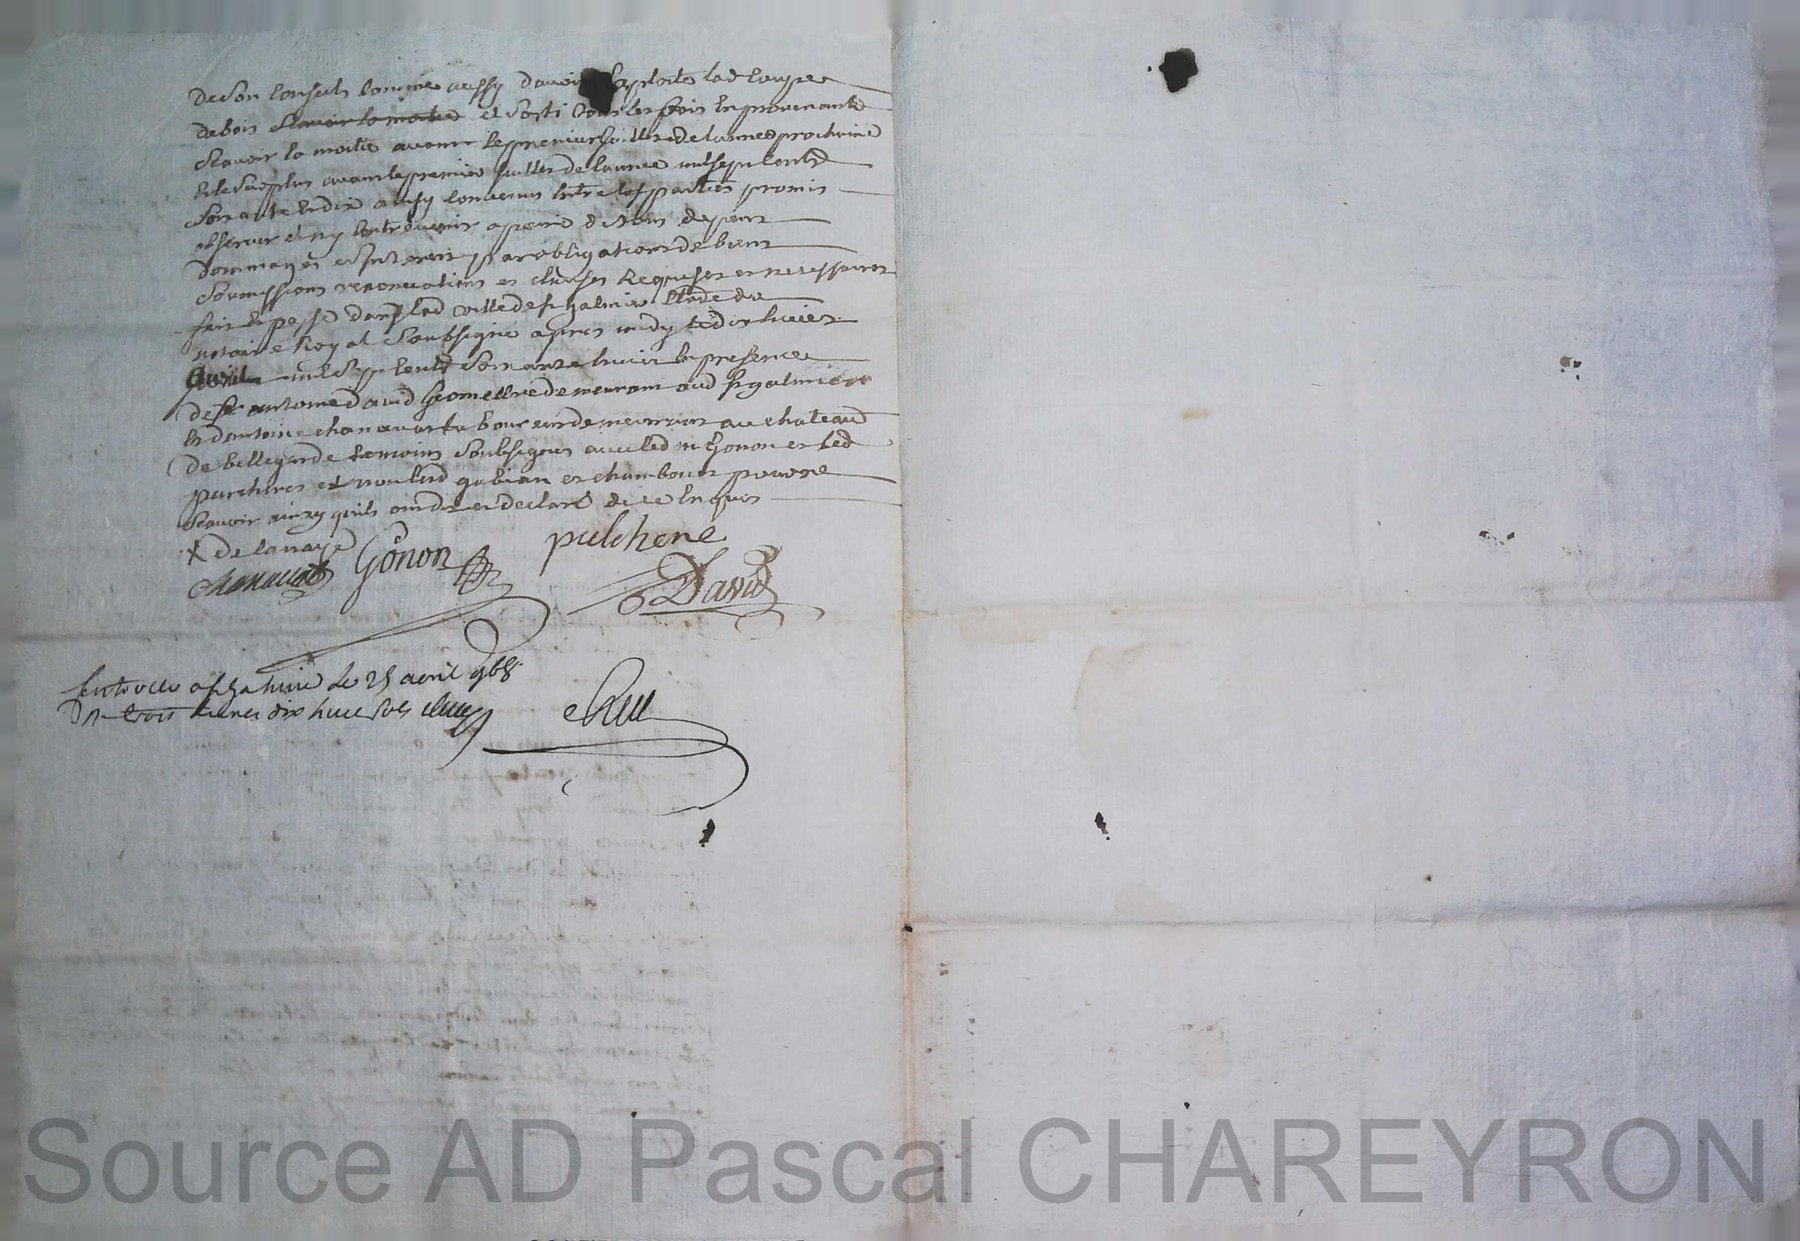 de son conseils comme aussy davoir Exploité lad coupe
de bois scavoir la moitié et sorti tous les bois En provenants
scavoir la moitié avant le premier juillet de lannee prochaine
et le surplus avant le premier juillet de lannee mil sept cents
soixante et dix ainsy convenus Entre les parties promis
observer et ny contrevenir a peine de tous depens
dommages et interets par obligations de biens
soumissions renonciations et clauses Requises et necessaires
fait et passé dans lad ville de st galmier Etude du
notaire Royal soubsigné apres midy le dix huict
avril mil sept cents soixante huict En presence
de sr antoine david geomettre demeurant aud st galmier
et dantoine chanavat demeurant au chateau
de bellegarde temoins soubsignés avec led me Gonon et led
pulchene et non lesd gabian et chambon pour ne
scavoir ainsy quils ont dit et declaré de ce Enquis
x de la naye
chanavat Gonon pulchene
David
Controllé a st galmier le 25 avril 1768
Rt trois livres dix huit sols